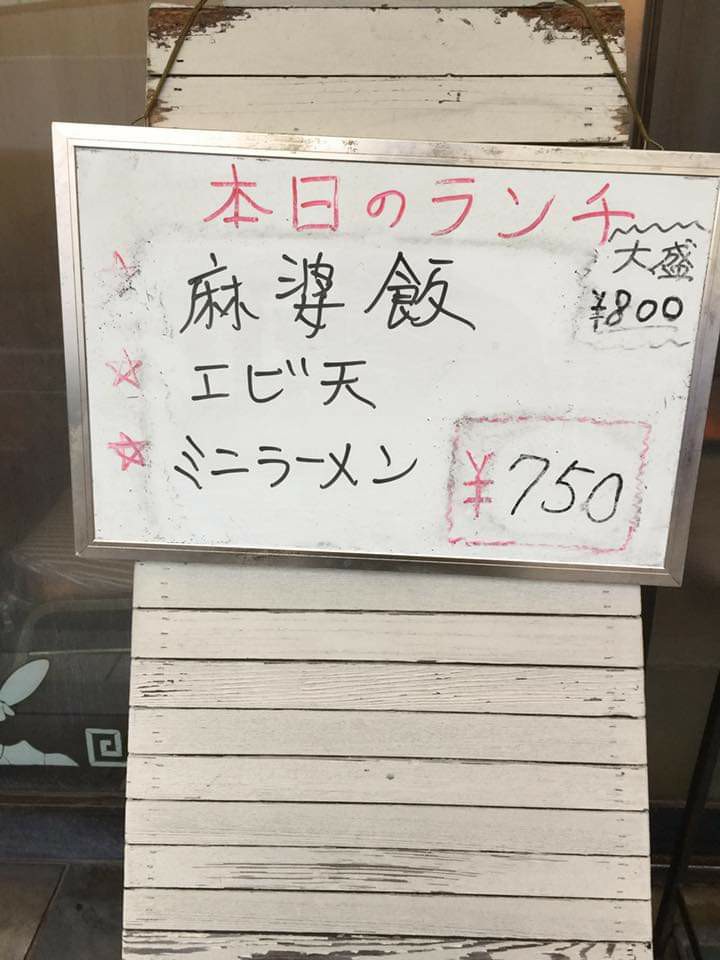 本日のランチ
大盛
¥800
麻婆飯
☆エビ天
☆ミニラーメン
¥750